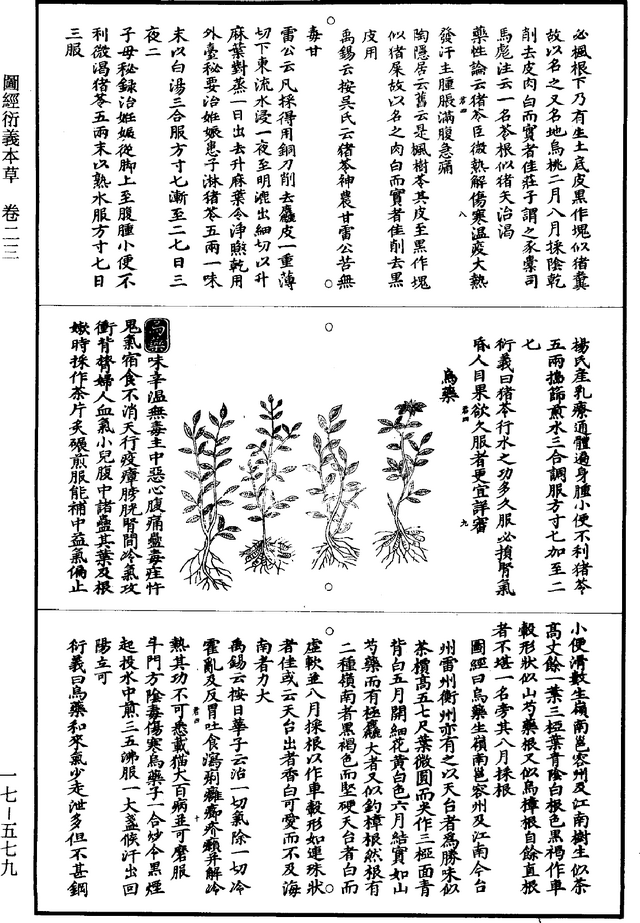 必楓根下乃有生土底皮黑作塊似猪糞
故以名之又名地烏桃二月八月採陰乾
削去皮肉白而實者佳莊子謂之豕橐司
馬彪注云一名苓根似猪矢治渴
藥性論云猪苓臣微熱解傷寒溫疫大熱
發汗主腫脹滿腹急痛
陶隱居云舊云是楓樹苓其皮至黑作塊
似猪屎故以名之肉白而實者佳削去黑
皮用
禹錫云按吳氏云猪苓神農甘雷公苦無
毒甘
雷公云凡採得用銅刀削去麤皮一重薄
切下東流水浸一夜至明漉出細切以升
麻葉對蒸一日出去升麻葉令淨㬠乾用
外臺秘要治姙娠患子淋猪苓五兩一味
末以白湯三合服方寸七漸至二七日三
夜二
子母秘録治姙娠從脚上至腹腫小便不
利微渴猪苓五兩末以熟水服方寸七日
三服
楊氏產乳療通體遍身腫小便不利猪苓
五兩擣篩煎水三合調服方寸七加至二
七
衍義曰猪苓行水之功多久服必損腎氣
昏人目果欲久服者更宜詳審
烏藥
烏藥味辛溫無毒主中惡心腹痛蠱毒疰忤
鬼氣宿食不消天行疫瘴膀胱腎間冷氣攻
衝背膂婦人血氣小兒腹中諸蟲其葉及根
嫩時採作茶片炙碾煎服能補中益氣偏止
小便滑數生嶺南邕容州及江南樹生似茶
高丈餘一葉三椏葉青陰白根色黑褐作車
轂形狀似山芍藥根又似烏樟根自餘直根
者不堪一名旁其八月採根
圖經曰烏藥生嶺南邕容州及江南今台
州雷州衡州亦有之以天台者爲勝味似
茶櫃高五七尺葉微圓而尖作三椏面青
背白五月開細花黄白色六月結實如山
芍藥而有極麤大者又似釣樟根然根有
二種嶺南者黑褐色而堅硬天台者白而
虛軟並八月採根以作車轂形如連珠狀
者佳或云天台出者香白可愛而不及海
南者力大
禹錫云按日華子云治一切氣除一切冷
霍亂及反胃吐食瀉痢癰癤疥癩并解冷
熱其功不可悉載猫犬百病並可磨服
斗門方陰毒傷寒烏藥子一合炒令黑煙
起投水中煎三五沸服一大盞候汗出回
陽立可
衍義曰烏藥和來氣少走泄多但不甚鋼
圖經衍義本草 卷二三
一七-五七九